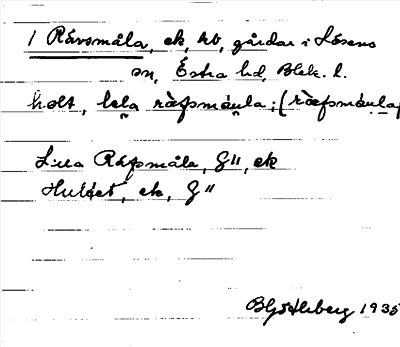 1 Rävsmåla, ek, hb, gårdar i Lösens
sn, Östra hd, Blek. l.
holt, lela ræfsmåula; (ræfsmåula
Lilla Räfsmåla, G", ek
Hultet, ek, G"
1935